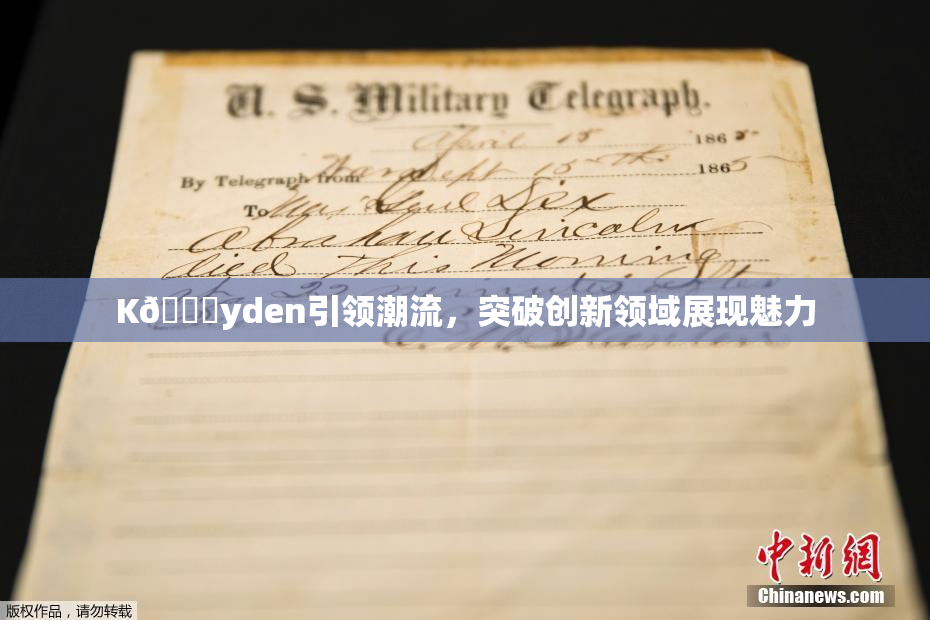 U. S. Military Telegraph.
April 15 1865
By Telegraph from War Dept 15th 1865
To Maj Genl Dix
Abraham Lincoln
died This Morning
at 22 minutes after
Kð����yden引领潮流，突破创新领域展现魅力
E. M. Stanton
中新网
Chinanews.com
版权作品，请勿转载